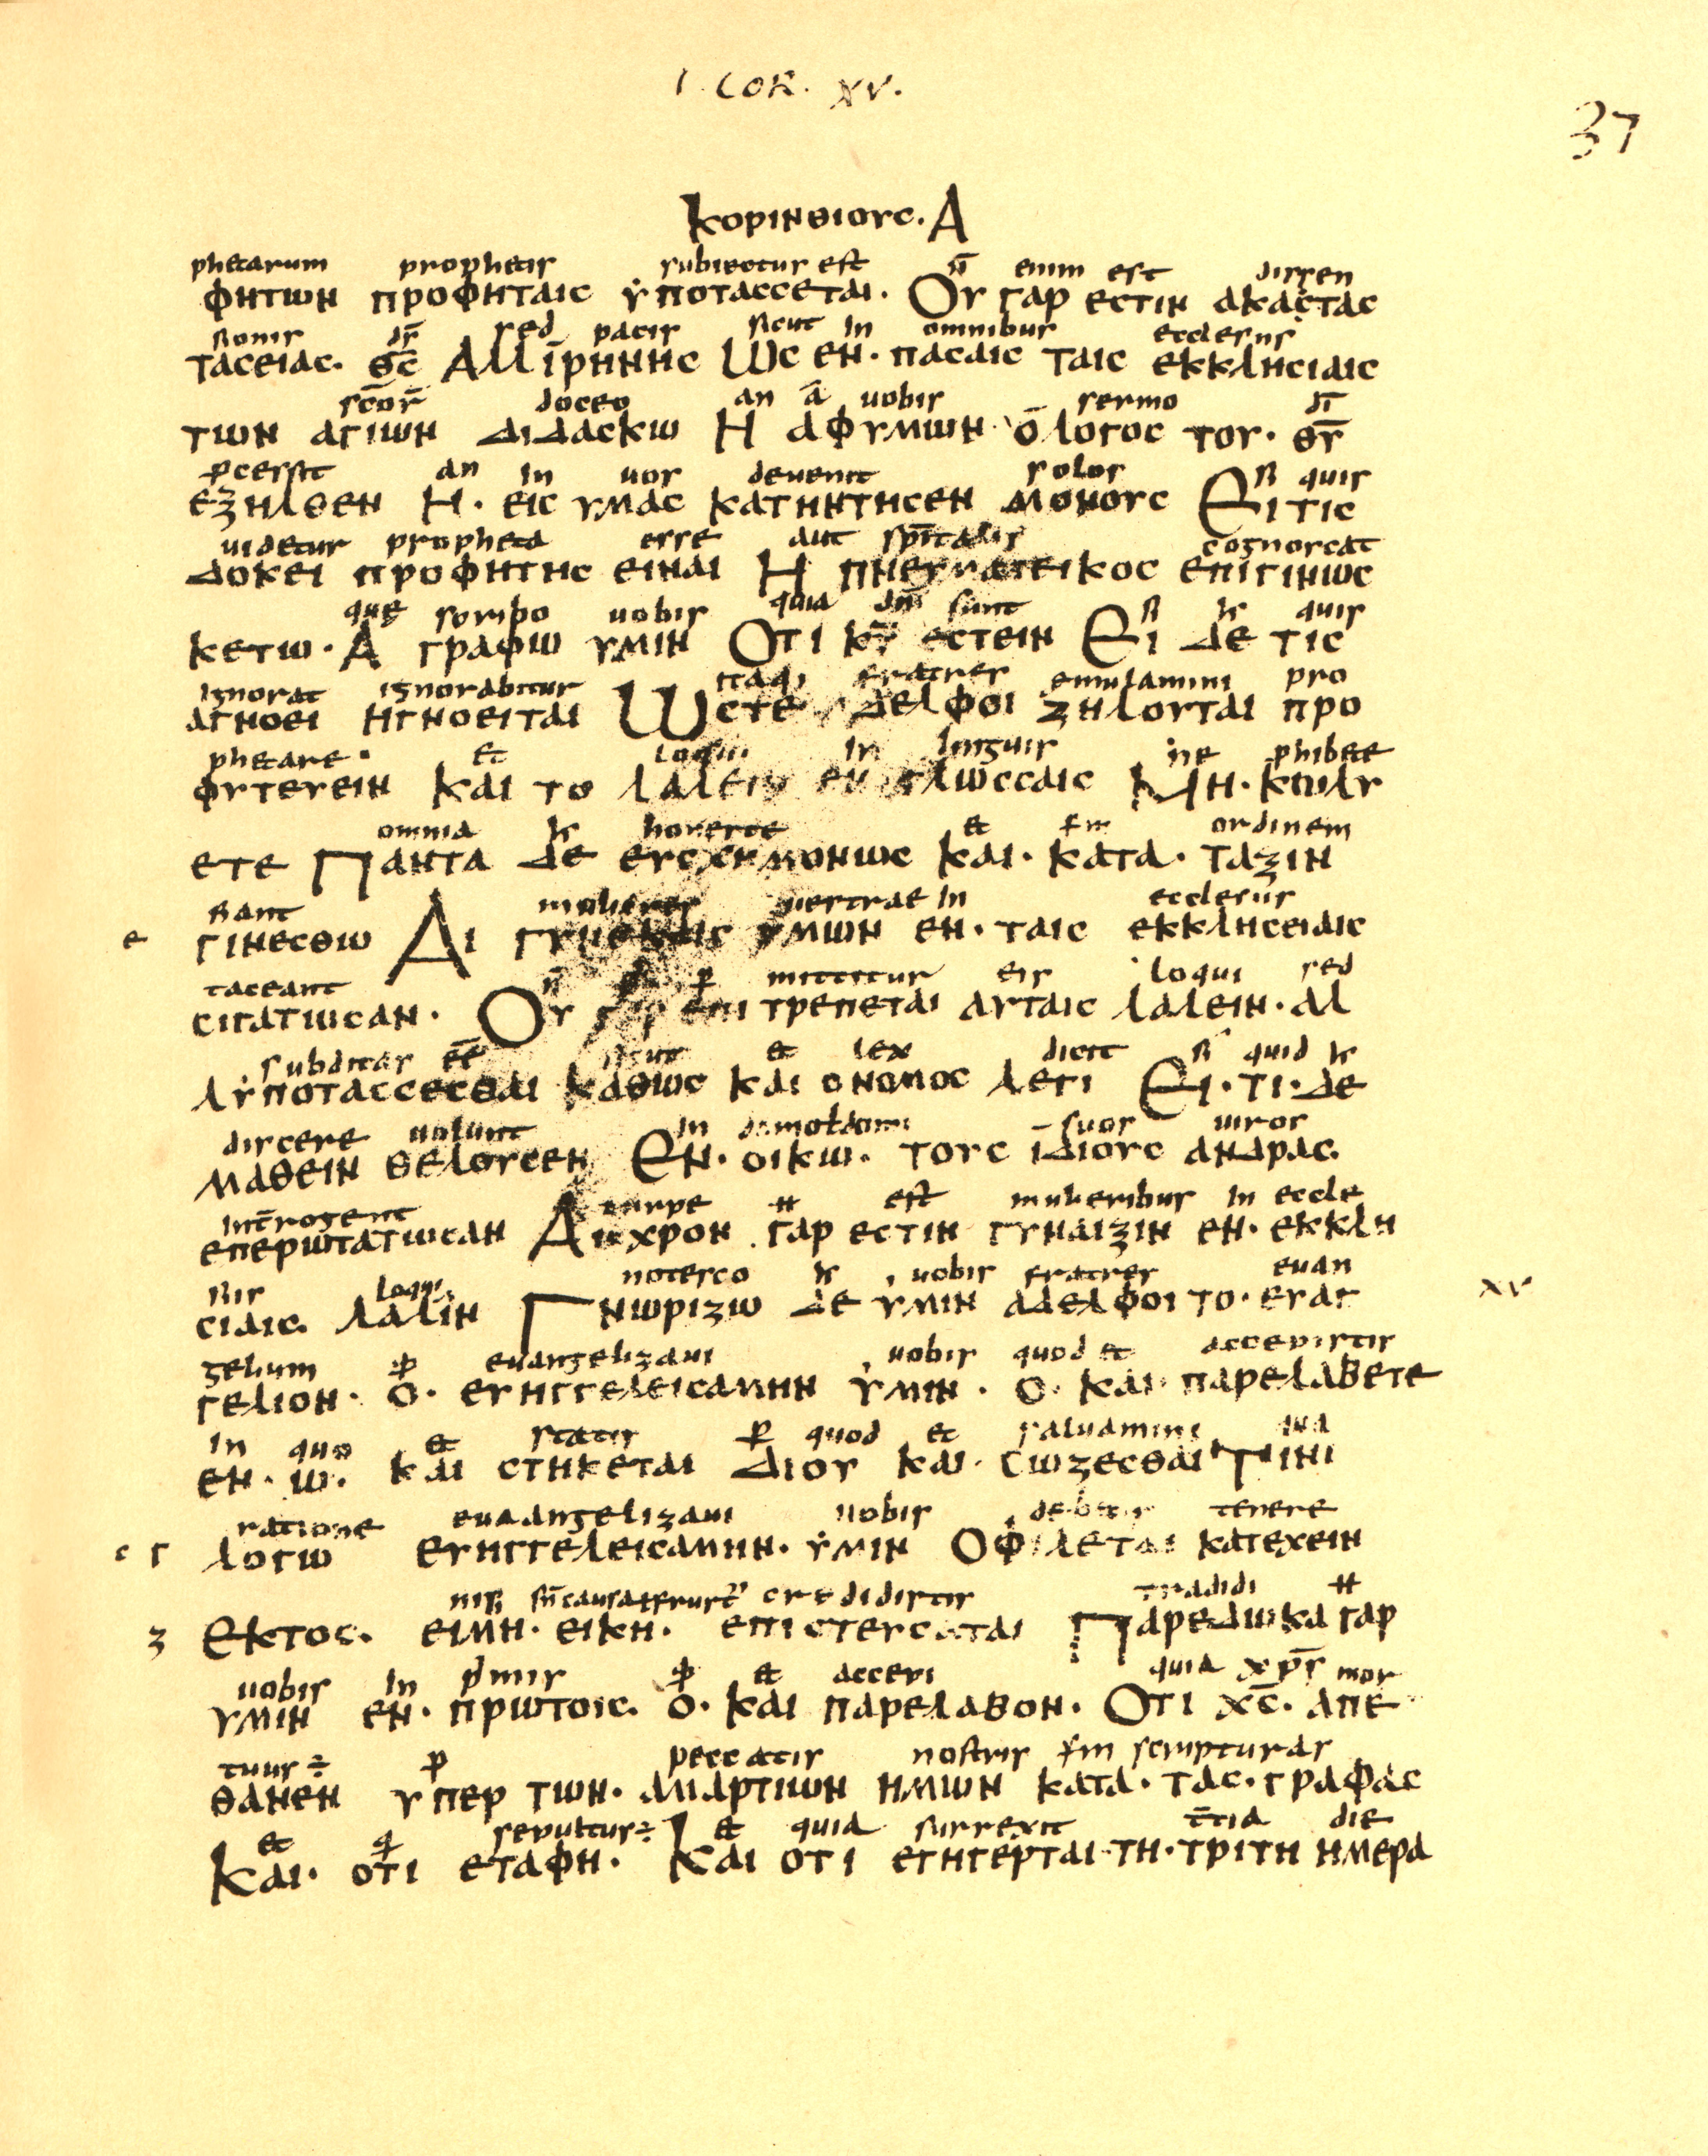 I. COR. XV.
37
ΚΟΡΙΝΘΙΟΥC. Α
phetarum prophetis subiectus est n̄ enim est dissen
ΦΗΤΩΝ ΠΡΟΦΗΤΑΙC ΥΠΟΤΑCCΕΤΑΙ. ΟΥ ΓΑΡ ΕCΤΙΝ ΑΚΑCΤΑC
sionis ds̄ sed pacis sicut in omnibus ecclesiis
ΤΑCΕΙΑC. Θ̄C̄ ΑΛΛΙΡΗΝΗC ΩC ΕΝ. ΠΑCΑΙC ΤΑΙC ΕΚΚΛΗCΙΑΙC
scōr̄ doceo an ā uobis sermo dī
ΤΩΝ ΑΓΙΩΝ ΔΙΔΑCΚΩ Η ΑΦΥΜΩΝ Ο ΛΟΓΟC ΤΟΥ. Θ̄Ῡ
pcessit an in uos deuenit solos si quis
ΕΞΗΛΘΕΝ Η. ΕΙC ΥΜΑC ΚΑΤΗΝΤΗCΕΝ ΜΟΝΟΥC ΕΙ ΤΙC
uidetur propheta esse aut spītalis cognoscat
ΔΟΚΕΙ ΠΡΟΦΗΤΗC ΕΙΝΑΙ Η ΠΝΕΥΜΑΤΕΙΚΟC ΕΠΙΓΙΝΩC
que scribo uobis quia dn̄i sunt si ł quis
ΚΕΤΩ. Α ΓΡΑΦΩ ΥΜΙΝ ΟΤΙ Κ̄Ῡ ΕCΤΕΙΝ ΕΙ ΔΕ ΤΙC
ignorat ignorabitur itaq; fratres emulamini pro
ΑΓΝΟΕΙ ΗΓΝΟΕΙΤΑΙ ΩCΤΕ ΔΕΛΦΟΙ ΖΗΛΟΥΤΑΙ ΠΡΟ
phetare. et loqui in linguis ne phibete
ΦΥΤΕΥΕΙΝ ΚΑΙ ΤΟ ΛΑΛΕΙΝ ΕΝ ΓΛΩCCΑΙC ΜΗ. ΚΩΛΥ
omnia ł honeste et scm ordinem
ΕΤΕ ΠΑΝΤΑ ΔΕ ΕΥCΧΗΜΟΝΩC ΚΑΙ. ΚΑΤΑ. ΤΑΞΙΝ
fiant mulieres uestrae in ecclesiis
ε ΓΙΝΕCΘΩ ΑΙ ΓΥΝΕΚΑΙC ΥΜΩΝ ΕΝ. ΤΑΙC ΕΚΚΛΗCΕΙΑΙC
taceant n̄ p mittitur eis loqui sed
CΙΓΑΤΩCΑΝ. ΟΥ ΓΑΡ ΕΠΙ ΤΡΕΠΕΤΑΙ ΑΥΤΑΙC ΛΑΛΕΙΝ. ΑΛ
subditas ēē sicut et lex dicit si quid ł
ΛΥΠΟΤΑCCΕCΘΑΙ ΚΑΘΩC ΚΑΙ ΟΝΟΜΟC ΛΕΓΙ ΕΙ. ΤΙ. ΔΕ
discere uolunt in domo suos uiros
ΜΑΘΕΙΝ ΘΕΛΟΥCΕΝ ΕΝ. ΟΙΚΩ. ΤΟΥC ΙΔΙΟΥC ΑΝΔΡΑC.
int̄rogent turpe ᚻ est mulieribus in eccle
ΕΠΕΡΩΤΑΤΩCΑΝ ΑΙCΧΡΟΝ ΓΑΡ ΕCΤΙΝ ΓΥΝΑΙΞΙΝ ΕΝ. ΕΚΚΛΗ
siis loqui notesco ł uobis fratres euan
CΙΑΙC. ΛΑΛΙΝ ΓΝΩΡΙΖΩ ΔΕ ΥΜΙΝ ΑΔΕΛΦΟΙ ΤΟ. ΕΥΑΓ XV
gelium ꝙ euangelizaui uobis quod et accepistis
ΓΕΛΙΟΝ. Ο. ΕΥΗΓΓΕΛΕΙCΑΜΗΝ ΥΜΙΝ. Ο. ΚΑΙ ΠΑΡΕΛΑΒΕΤΕ
in quo et statis p quod et saluamini qua
ΕΝ. Ω. ΚΑΙ CΤΗΚΕΤΑΙ ΔΙΟΥ ΚΑΙ. CΩΖΕCΘΑΙ ΤΙΝΙ
ratione euaangelizaui uobis debetis tenere
c Γ ΛΟΓΩ ΕΥΗΓΓΕΛΕΙCΑΜΗΝ. ΥΜΙΝ ΟΦΙΛΕΤΑΙ ΚΑΤΕΧΕΙΝ
nisi credidistis tradidi ᚻ
ζ ΕΚΤΟC. ΕΙΜΗ. ΕΙΚΗ. ΕΠΙCΤΕΥCΑΤΑΙ ΠΑΡΕΔΩΚΑ ΓΑΡ
uobis in pmis ꝙ et accepi quia xp̄s mor
ΥΜΙΝ ΕΝ. ΠΡΩΤΟΙC. Ο. ΚΑΙ ΠΑΡΕΛΑΒΟΝ. ΟΤΙ Χ̄C̄. ΑΠΕ
tuus ÷ p peccatis nostris scm scripturas
ΘΑΝΕΝ ΥΠΕΡ ΤΩΝ. ΑΜΑΡΤΙΩΝ ΗΜΩΝ ΚΑΤΑ. ΤΑC. ΓΡΑΦΑC
et ꝙ sepultus ÷ et quia surrexit t̄tia die
ΚΑΙ. ΟΤΙ ΕΤΑΦΗ. ΚΑΙ ΟΤΙ ΕΓΗΓΕΡΤΑΙ ΤΗ. ΤΡΙΤΗ ΗΜΕΡΑ